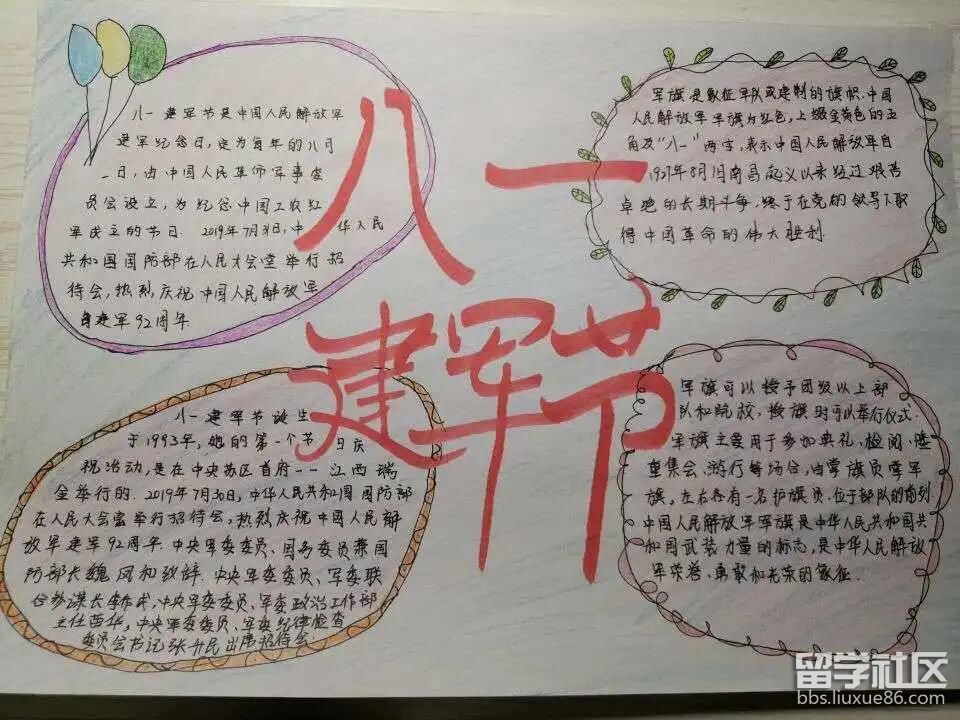 八一
建军节
八一建军节是中国人民解放军
建军纪念日,定为每年的八月
一日,由中国人民革命军事委
员会设立,为纪念中国工农红
军成立的节日. 2019年7月31日,中华人民
共和国国防部在人民大会堂举行招
待会,热烈庆祝中国人民解放军
建军92周年
军旗是象征军队或建制的旗帜.中国
人民解放军军旗为红色,上缀金黄色的五
角及“八一”两字,表示中国人民解放军自
1927年8月1日南昌起义以来经过艰苦
卓绝的长期斗争,终于在党的领导下取
得中国革命的伟大胜利
八一建军节诞生
于1993年,她的第一个节日庆
祝活动,是在中央苏区首府--江西瑞
金举行的. 2019年7月30日,中华人民共和国国防部
在人民大会堂举行招待会,热烈庆祝中国人民解
放军建军92周年.中央军委委员、国务委员兼国
防部长魏凤和致辞.中央军委委员、军委联
合参谋长李作成,中央军委委员、军委政治工作部
主任苗华,中央军委委员、军委纪律检查
委员会书记张升民出席招待会.
军旗可以授予团级以上部
队和院校,授旗时可以举行仪式.
军旗主要用于参加典礼、检阅、隆
重集会、游行等场合,由掌旗员掌军
旗,左右各有一名护旗员,位于部队的前列.
中国人民解放军军旗是中华人民共和国共
和国武装力量的标志,是中华人民解放
军荣誉、勇敢和光荣的象征.
留学社区
bbs.liuxue86.com